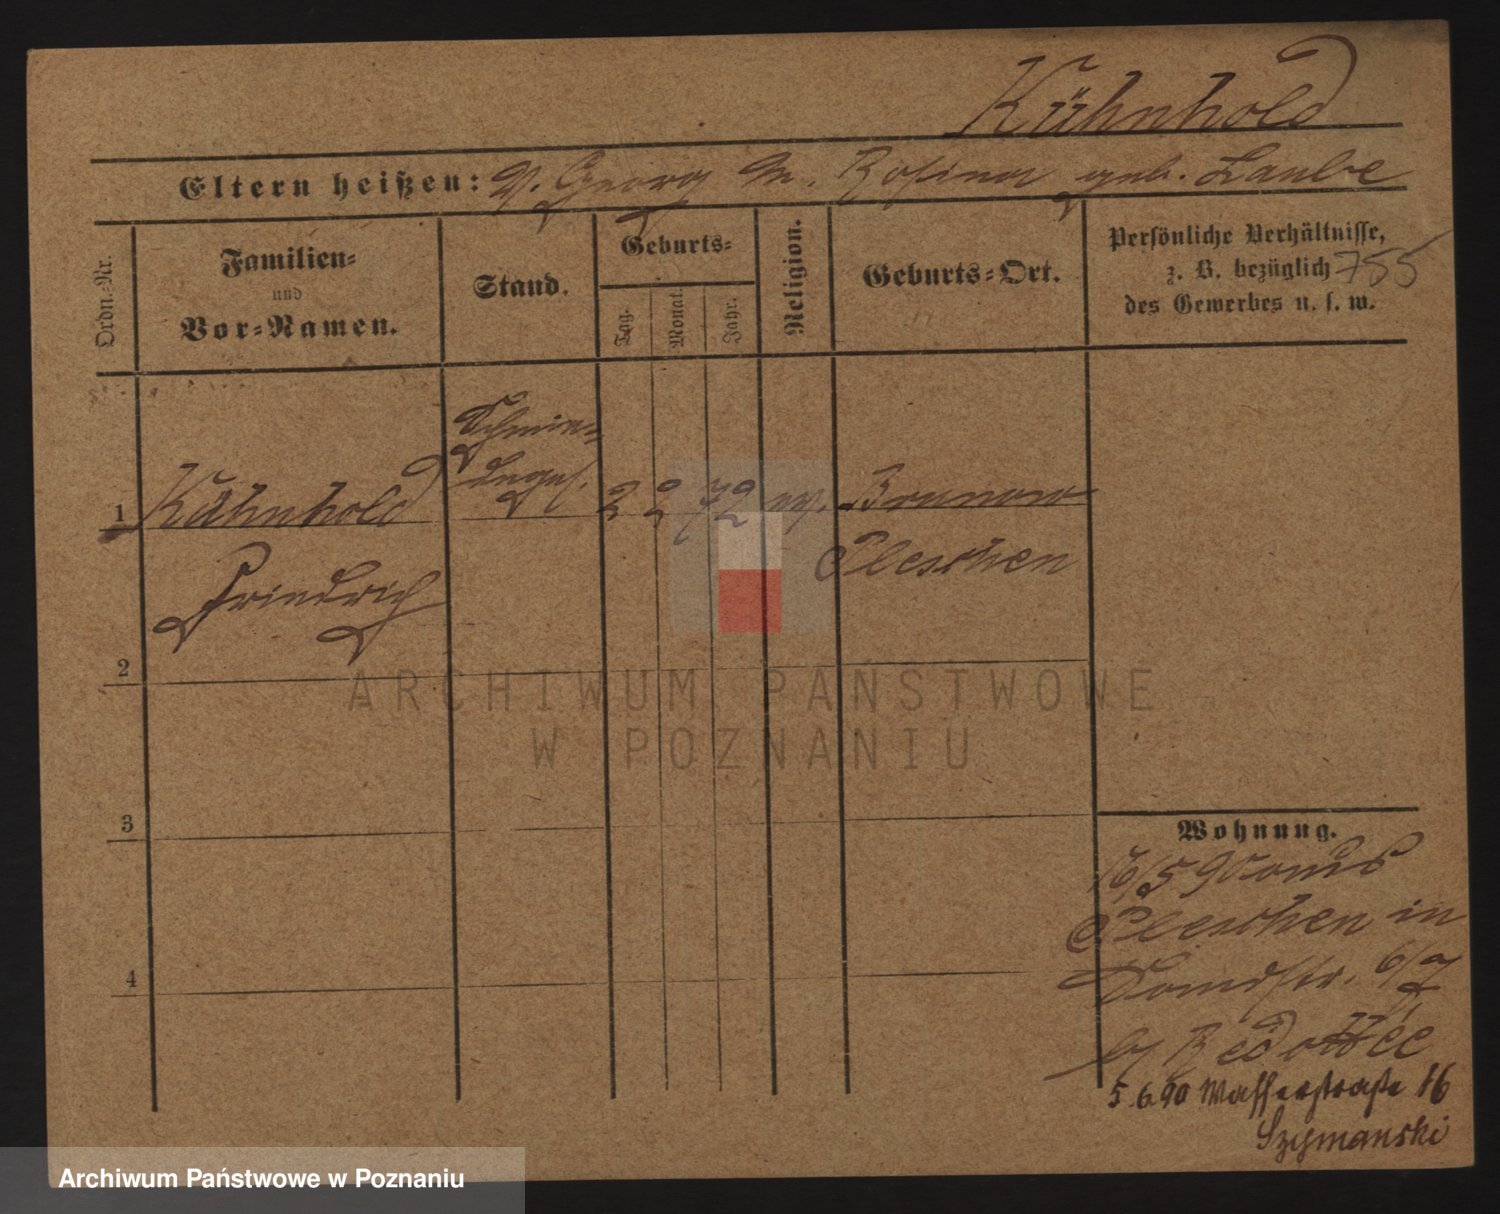 Kühnhold
Eltern heißen: V. Georg M. Rosina geb. Laube
Ordn.-Nr.
Familien-
und
Vor-Namen.
Stand.
Geburts-
Tag.
Monat.
Jahr.
Religion.
Geburts-Ort.
Persönliche Verhältnisse,
z. B. bezüglich 755
des Gewerbes u. s. w.
1 Kühnhold
Friedrich
Schmie-
deges.
2 2 72 ev. Bronow
Pleschen
2
3
4
Wohnung.
16/5 90 aus
Pleschen in
Domstr. 6/7
b/
5.6.90 Wasserstraße 16
Szymanski
ARCHIWUM PAŃSTWOWE
W POZNANIU
Archiwum Państwowe w Poznaniu